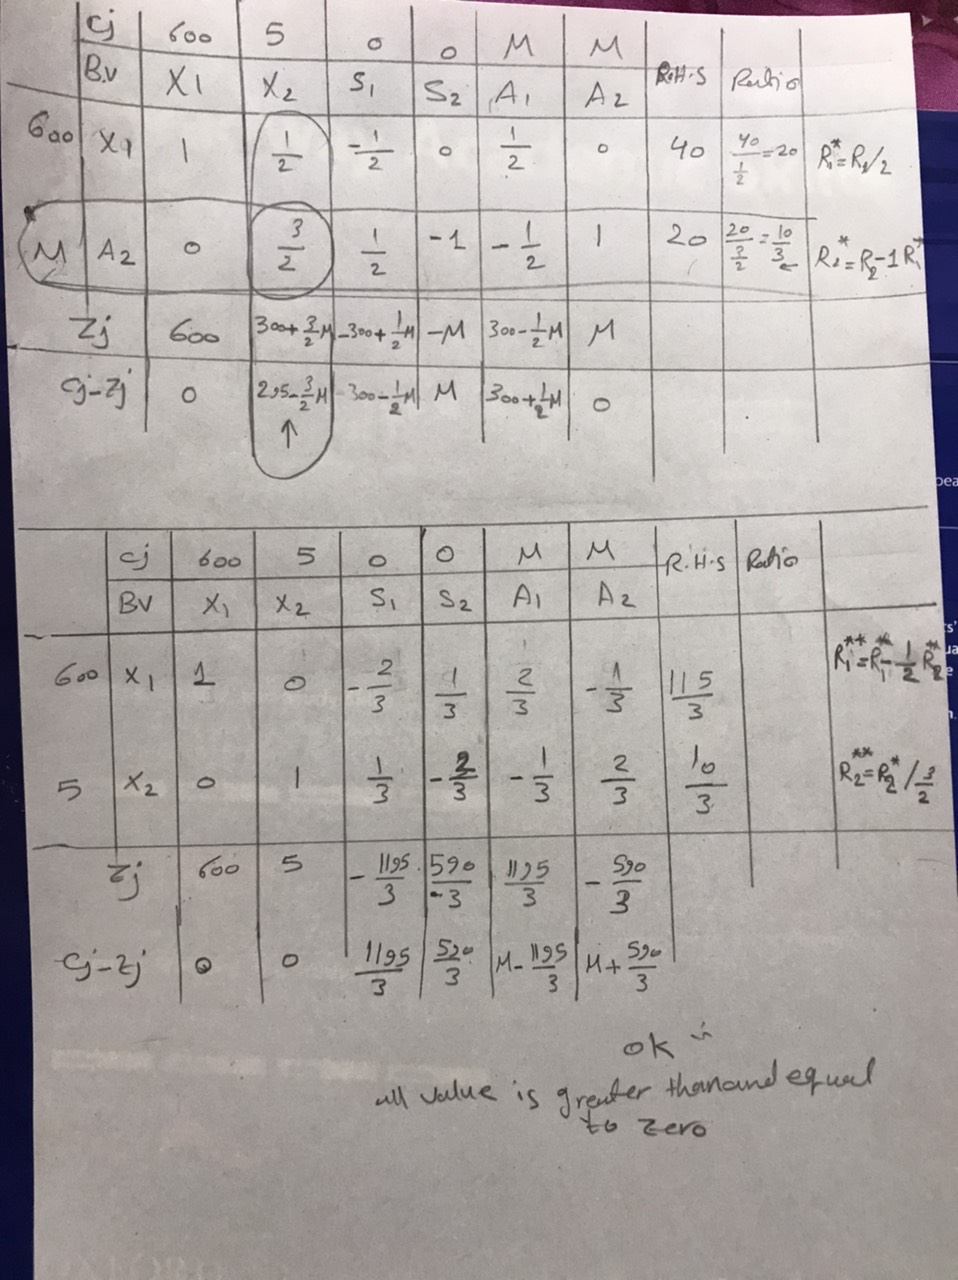 Cj 600 5 0 0 M M
B.V X1 X2 S1 S2 A1 A2 R.H.S Ratio
600 X1 1 1/2 -1/2 0 1/2 0 40 40/(1/2)=20 R1*=R1/2
M A2 0 3/2 1/2 -1 -1/2 1 20 20/(3/2)=10/3 R2*=R2-1R1*
Zj 600 300+3/2M -300+1/2M -M 300-1/2M M
Cj-Zj 0 295-3/2M 300-1/2M M 300+1/2M 0
Cj 600 5 0 0 M M R.H.S Ratio
BV X1 X2 S1 S2 A1 A2
600 X1 1 0 -2/3 1/3 2/3 -1/3 115/3 R1**=R1*-1/2R2**
5 X2 0 1 1/3 -2/3 -1/3 2/3 10/3 R2**=R2*/3/2
Zj 600 5 -1195/3 590/-3 1195/3 -590/3
Cj-Zj 0 0 1195/3 590/3 M-1195/3 M+590/3
ok
all value is greater than and equal
to zero